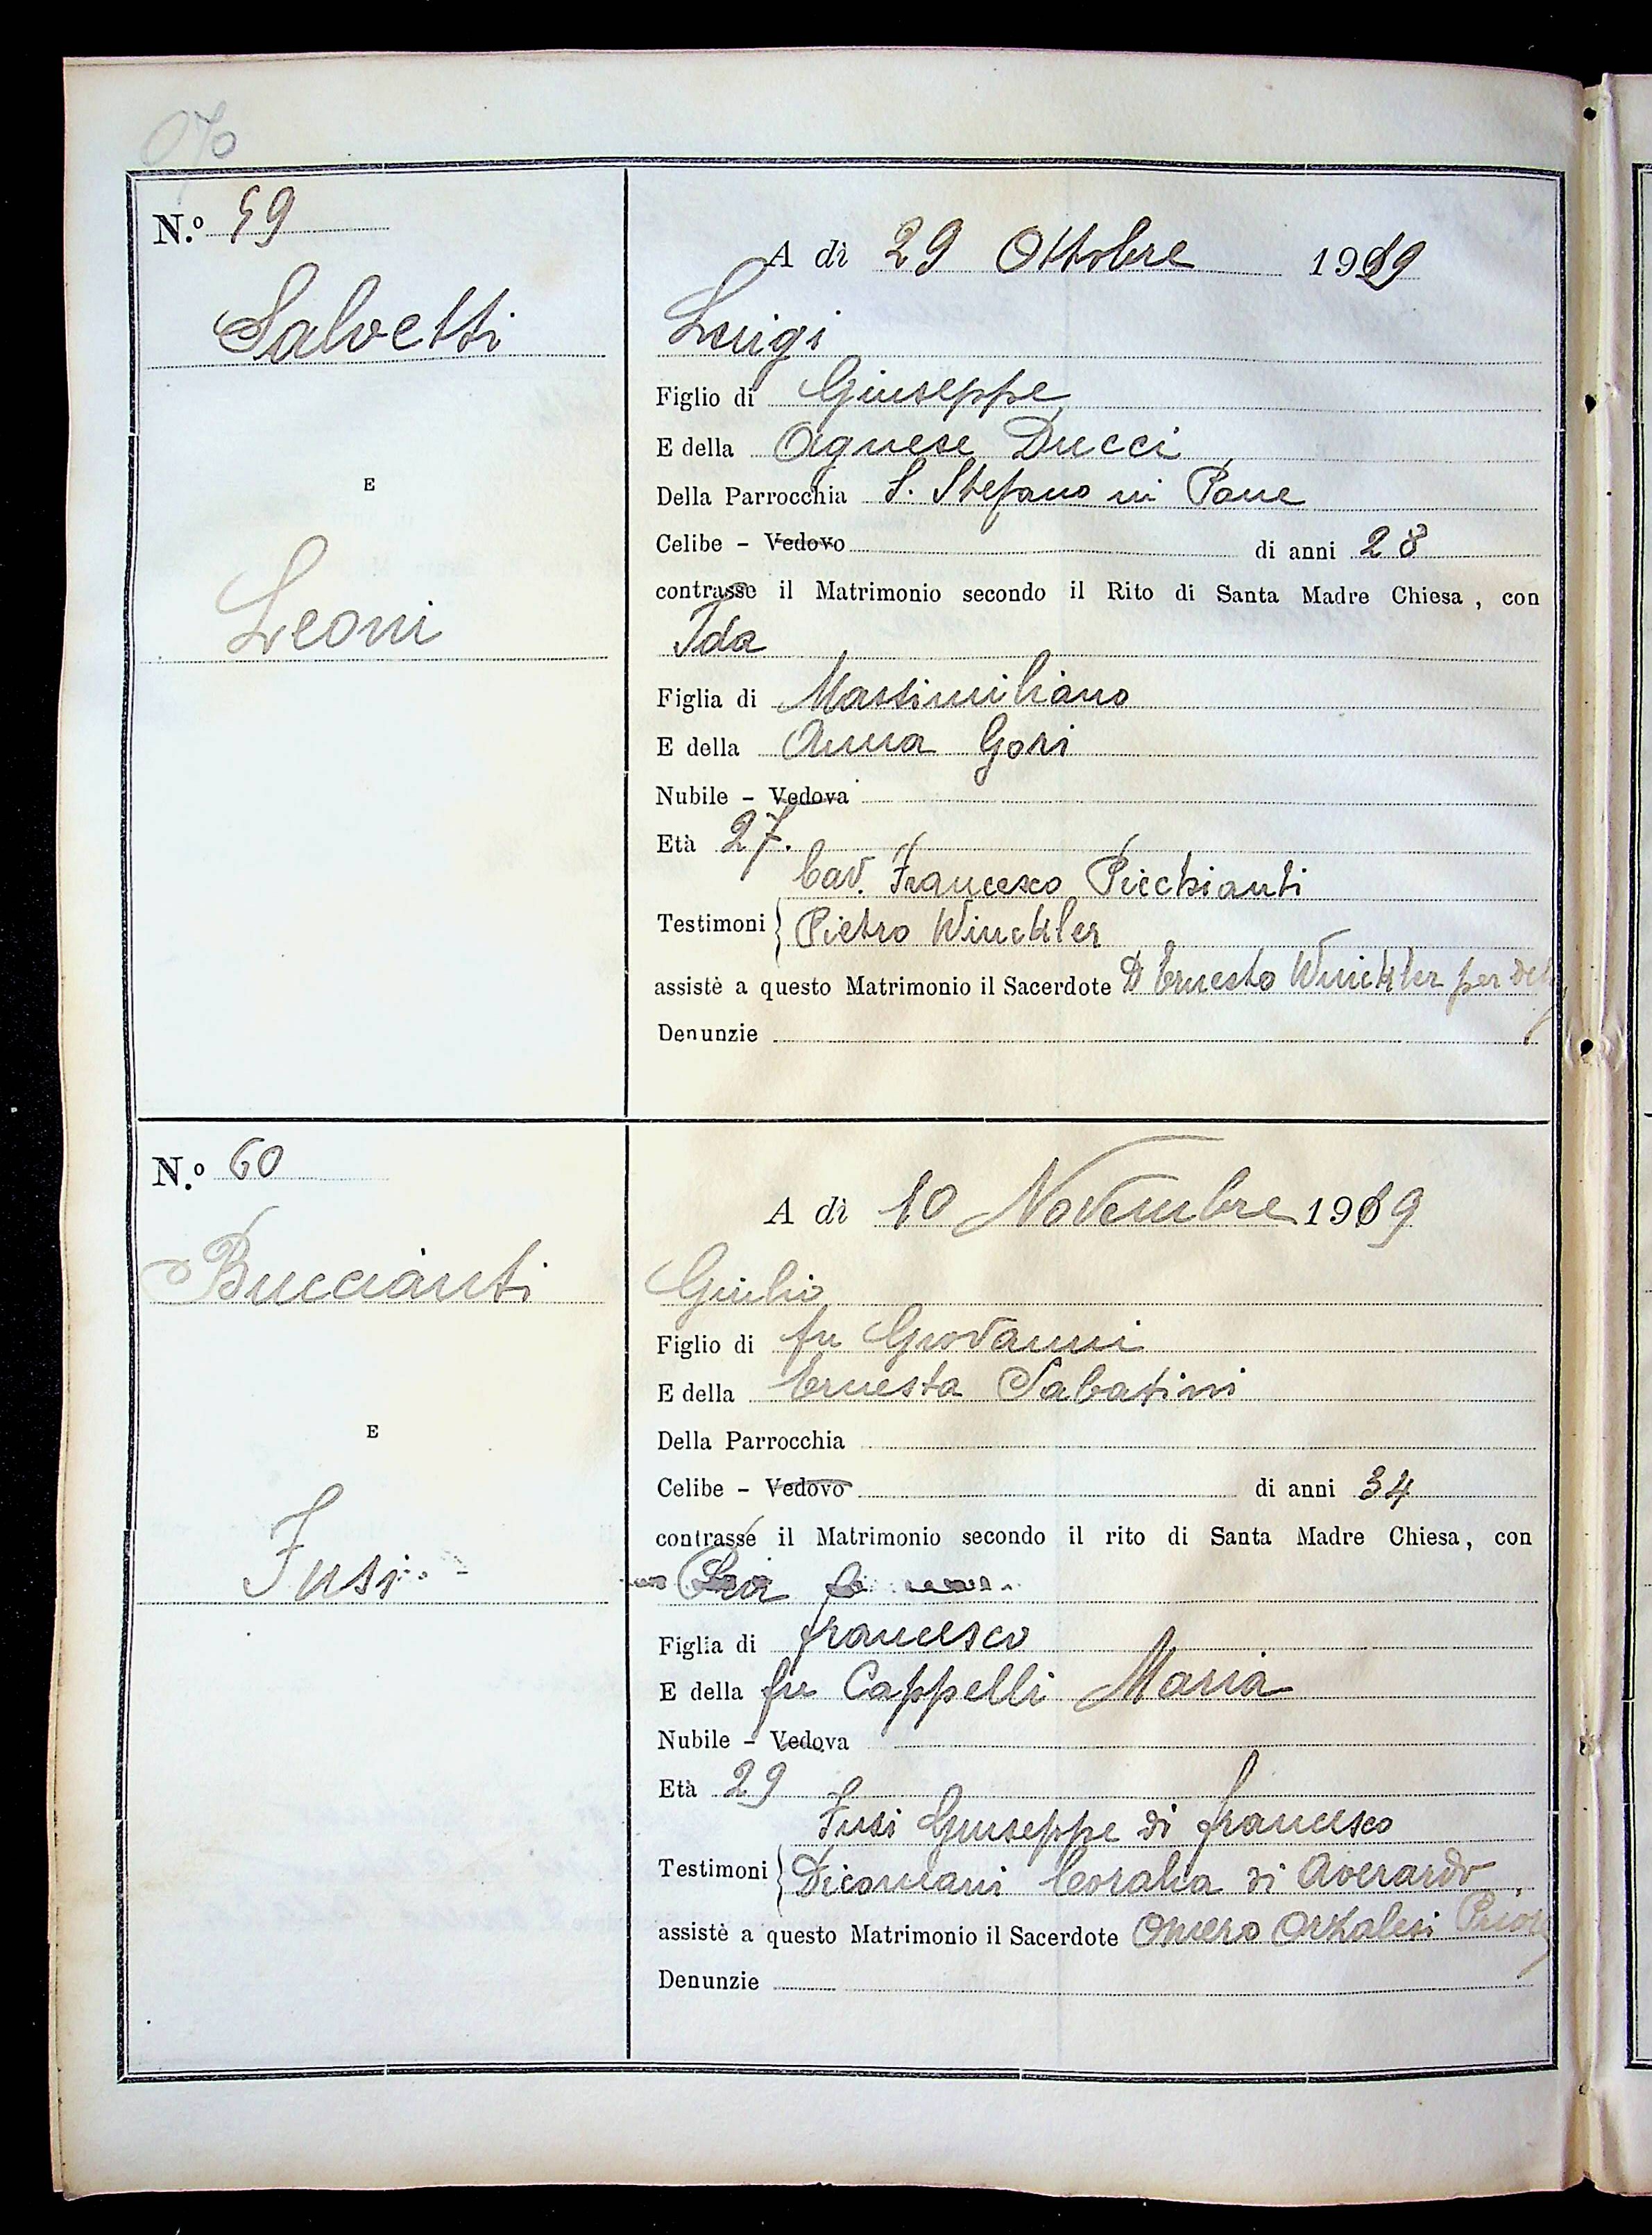 N.º 59
A dì 29 Ottobre 1919
Salvetti
Luigi
Figlio di Giuseppe
E della Agnese Ducci
Della Parrocchia S. Stefano in Pane
E
Celibe - Vedovo di anni 28
contrasse il Matrimonio secondo il Rito di Santa Madre Chiesa, con
Leoni
Ida
Figlia di Massimiliano
E della Anna Gori
Nubile - Vedova
Età 27.
Cav. Francesco Picchianti
Testimoni Pietro Winckler
assistè a questo Matrimonio il Sacerdote D Ernesto Winckler per
Denunzie
N.º 60
A dì 10 Novembre 1919
Buccianti
Giulio
Figlio di fu Giovanni
E della Ernesta Sabatini
Della Parrocchia
E
Celibe - Vedovo di anni 34
contrasse il Matrimonio secondo il rito di Santa Madre Chiesa, con
Fusi
Figlia di francesco
E della fu Cappelli Maria
Nubile - Vedova
Età 29
Fusi Giuseppe di francesco
Testimoni Dicomani Coralia di Averardo
assistè a questo Matrimonio il Sacerdote Omero Orzalesi Priore
Denunzie